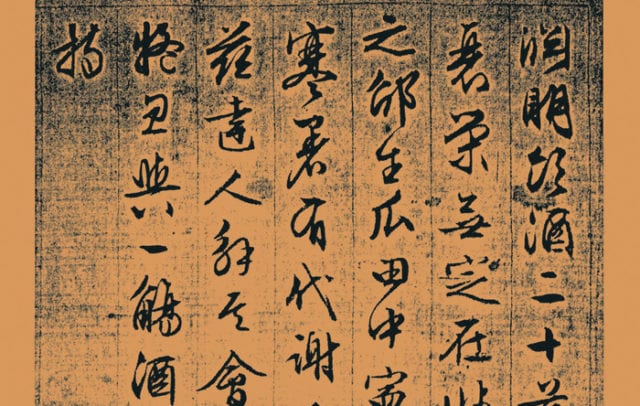 淵明飲酒二十
衰榮無定在
之邵生瓜田中寧
寒暑有代謝
茲達人解其會
疑忽與一觴酒
持